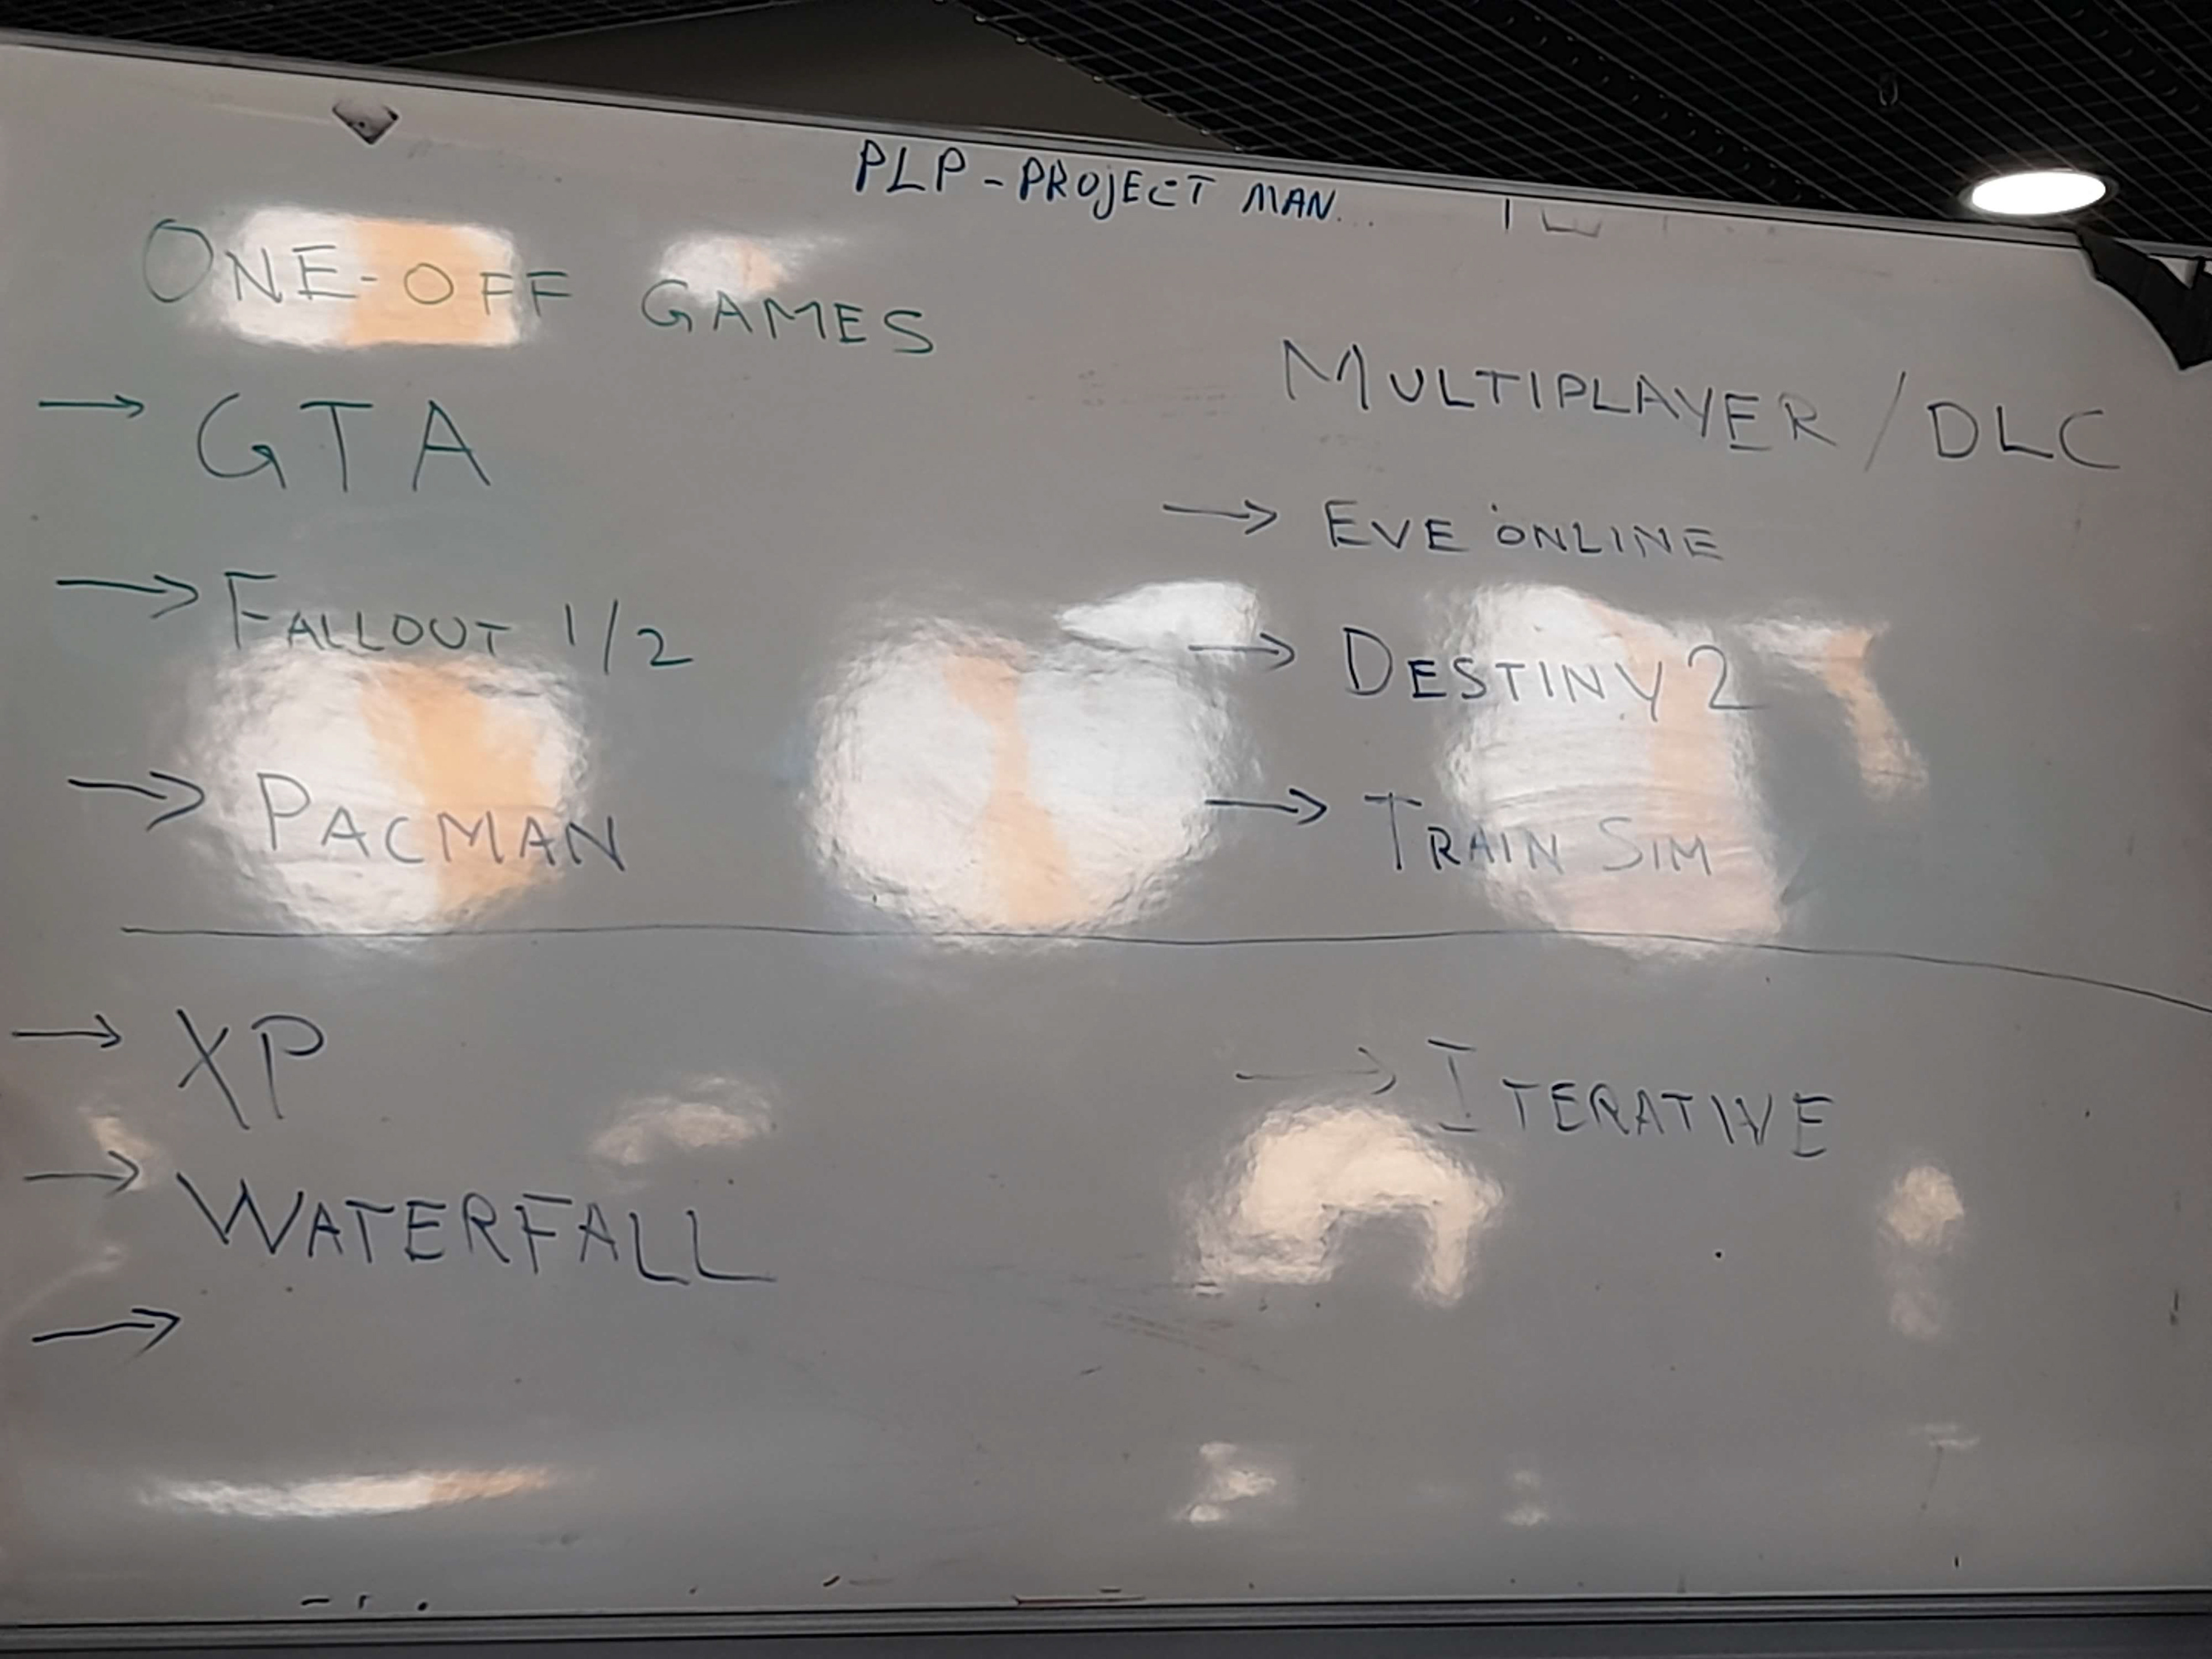 PLP - PROJECT MAN...
ONE-OFF GAMES
→ GTA
→ FALLOUT 1/2
→ PACMAN
MULTIPLAYER / DLC
→ EVE ONLINE
→ DESTINY 2
→ TRAIN SIM
→ XP
→ WATERFALL
→
→ ITERATIVE